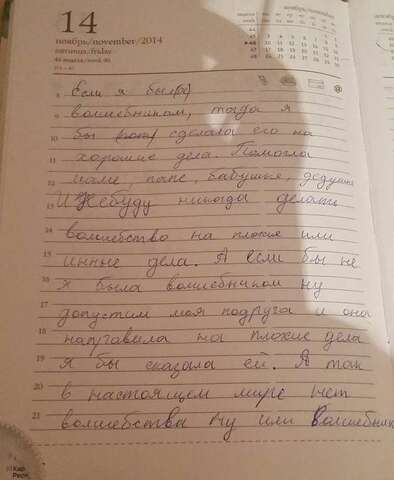 14
ноябрь/november/2014
пятница/friday
46 неделя/week 46
Если я был(а)
волшебником, тогда я
бы сделала его на
хорошие дела. Помогла
маме, папе, бабушке, дедушке
И небуду никогда делать
волшебство на плохие или
инные дела. А если бы не
я была волшебником ну
допустим моя подруга и она
направила на плохие дела
я бы сказала ей. А так
в настоящем мире нет
волшебства ну или волшебник